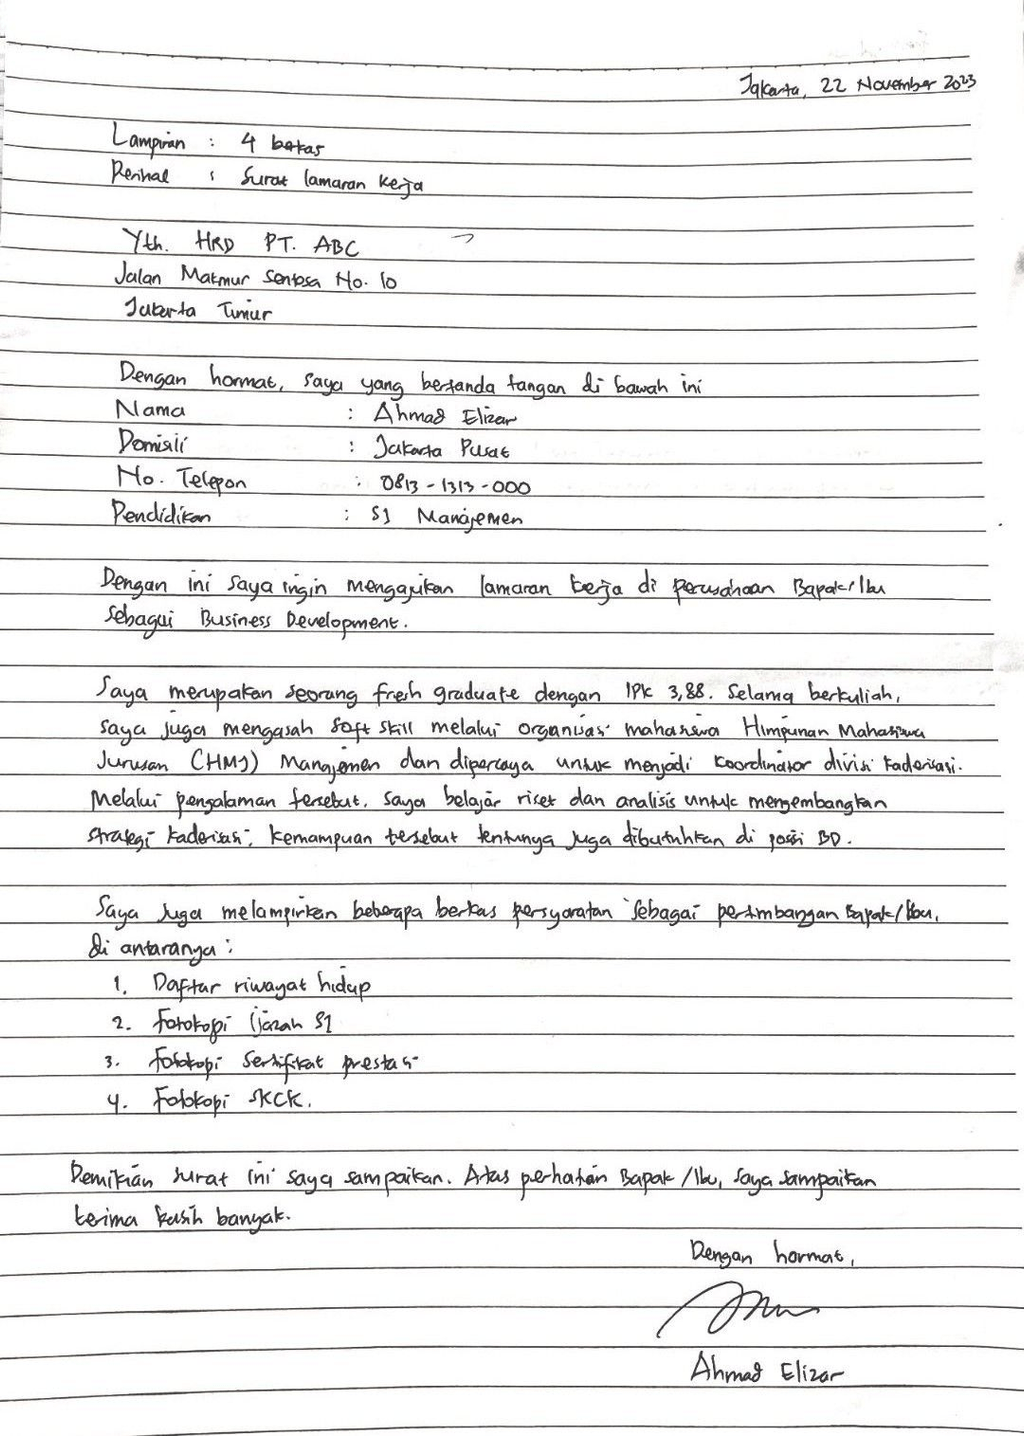 Jakarta, 22 November 2023
Lampiran : 4 berkas
Perihal : Surat lamaran kerja
Yth. HRD PT. ABC
Jalan Makmur Sentosa No. 10
Jakarta Timur
Dengan hormat, saya yang bertanda tangan di bawah ini
Nama : Ahmad Elizar
Domisili : Jakarta Pusat
No. Telepon : 0813-1313-000
Pendidikan : S1 Manajemen
Dengan ini saya ingin mengajukan lamaran kerja di perusahaan Bapak/Ibu
sebagai Business Development.
Saya merupakan seorang fresh graduate dengan IPK 3,88. Selama berkuliah,
saya juga mengasah soft skill melalui organisasi mahasiswa Himpunan Mahasiswa
Jurusan (HMJ) Manajemen dan dipercaya untuk menjadi koordinator divisi kaderisasi.
Melalui pengalaman tersebut, saya belajar riset dan analisis untuk mengembangkan
strategi kaderisasi, kemampuan tersebut tentunya juga dibutuhkan di posisi BD.
Saya juga melampirkan beberapa berkas persyaratan sebagai pertimbangan Bapak/Ibu,
di antaranya :
1. Daftar riwayat hidup
2. Fotokopi ijazah S1
3. Fotokopi sertifikat prestasi
4. Fotokopi SKCK.
Demikian surat ini saya sampaikan. Atas perhatian Bapak/Ibu, saya sampaikan
terima kasih banyak.
Dengan hormat,
Ahmad Elizar